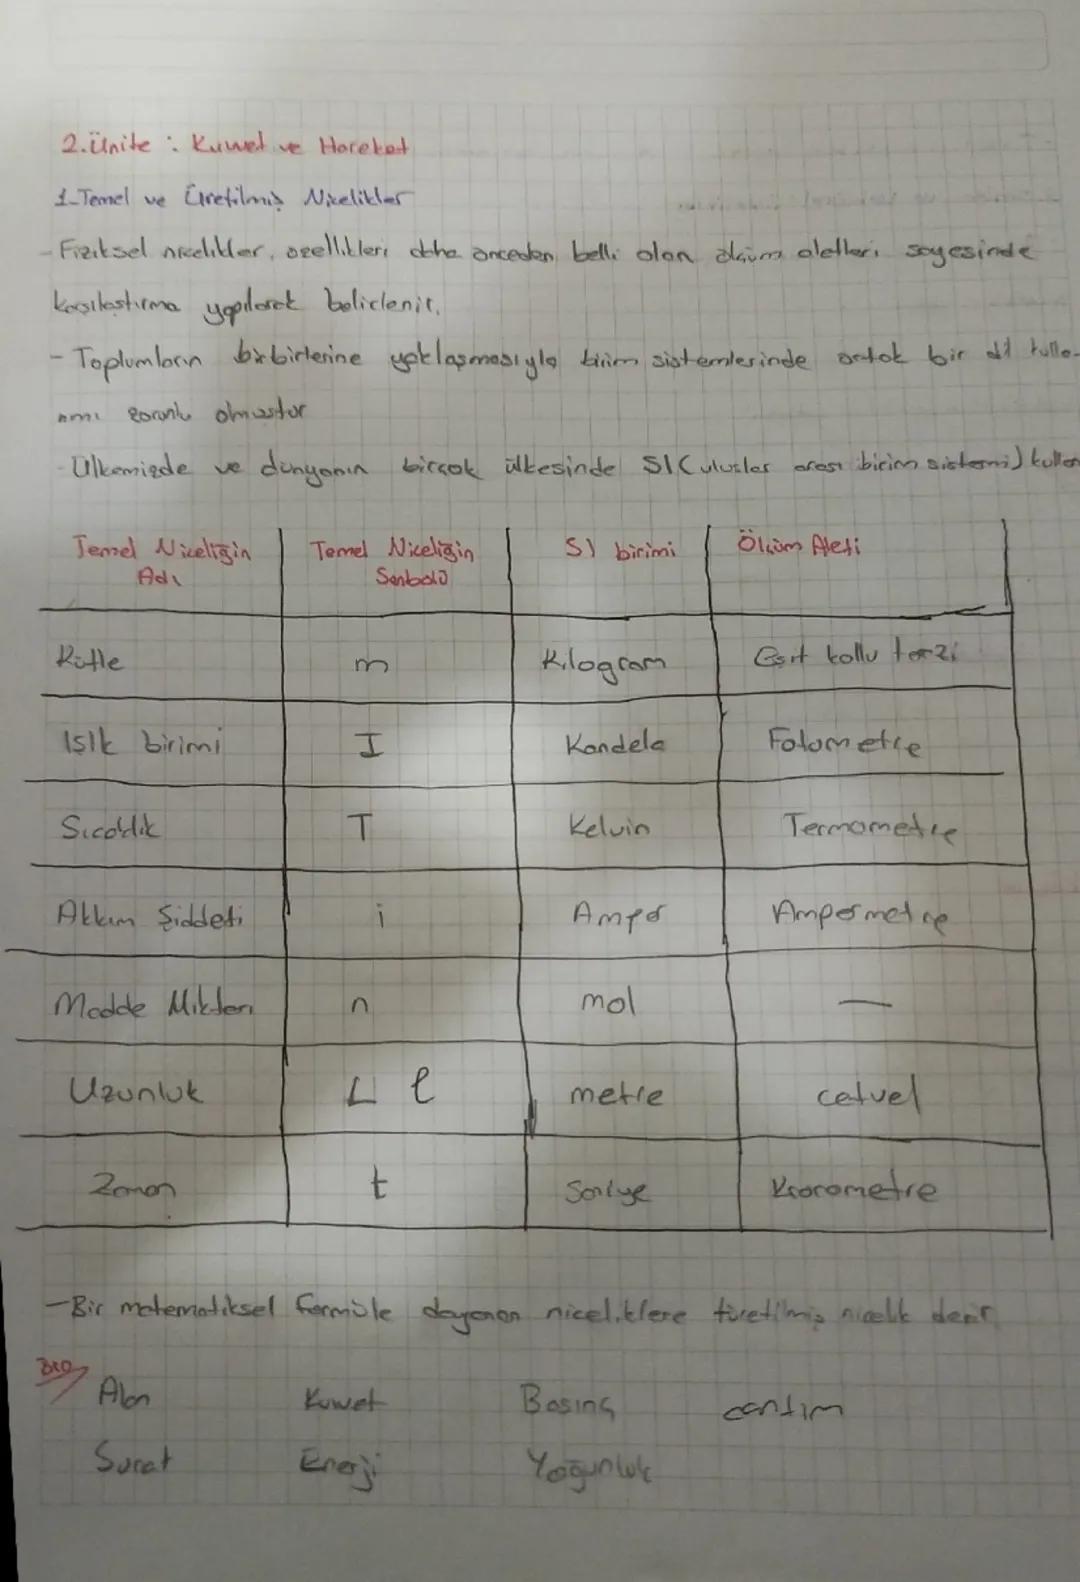 2.Ünite : Kuvvet ve Hareket
1-Temel ve Üretilmiş Nicelikler
- Fiziksel nicelikler, özellikleri daha önceden belli olan ölçüm aletleri sayesinde
karşılaştırma yapılarak belirlenir.
- Toplumların birbirlerine yaklaşmasıyla birim sistemlerinde ortak bir dil kulla-
nımı zorunlu olmuştur
- Ülkemizde ve dünyanın birçok ülkesinde SI (uluslar arası birim sistemi) kullan
Temel Niceliğin Adı | Temel Niceliğin Sembolü | SI birimi | Ölçüm Aleti
Kütle | m | Kilogram | Eşit kollu terazi
Işık birimi | I | Kandela | Fotometre
Sıcaklık | T | Kelvin | Termometre
Akım Şiddeti | i | Amper | Ampermetre
Madde Miktarı | n | mol | —
Uzunluk | L l | metre | cetvel
Zaman | t | Saniye | Kronometre
- Bir matematiksel formüle dayanan niceliklere türetilmiş nicelik denir
Alan Kuvvet Basınç
Sürat Enerji Yoğunluk